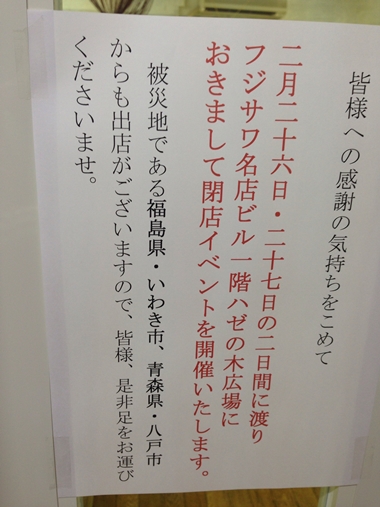 皆様への感謝の気持ちをこめて
二月二十六日・二十七日の二日間に渡り
フジサワ名店ビル一階ハゼの木広場に
おきまして閉店イベントを開催いたします。
被災地である福島県・いわき市、青森県・八戸市
からも出店がございますので、皆様、是非足をお運び
くださいませ。